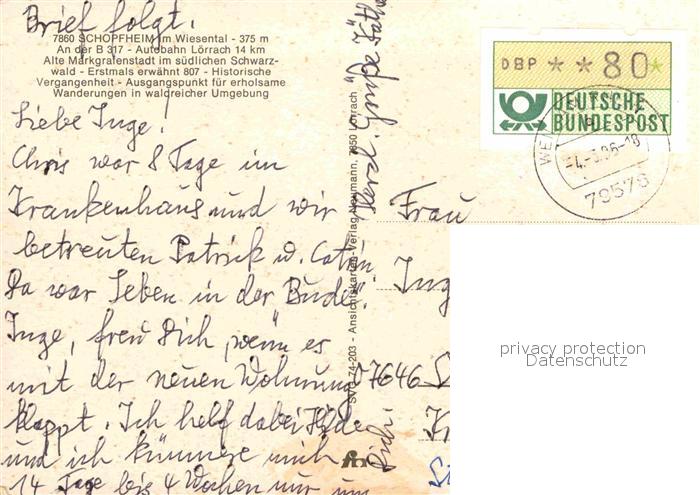 Brief folgt.
7860 SCHOPFHEIM im Wiesental - 375 m
An der B 317 - Autobahn Lörrach 14 km
Alte Markgrafenstadt im südlichen Schwarz-
wald - Erstmals erwähnt 807 - Historische
Vergangenheit - Ausgangspunkt für erholsame
Wanderungen in waldreicher Umgebung
Liebe Inge!
Chris war 8 Tage im
Krankenhaus und wir
betreuten Patrick u. Catrin.
Da war Leben in der Bude.
Inge, freu Dich, wenn es
mit der neuen Wohnung
klappt. Ich helf dabei
und ich kümmere mich
14 Tage bis 4 Wochen nur um
Dich.
Herzl. Grüße
SVG 74-203 - Ansichtskarten-Verlag Neumann, 7850 Lörrach
DBP * * 80 *
DEUTSCHE
BUNDESPOST
WE
-4.-3.96-18
79576
Frau
Ing
7646
privacy protection
Datenschutz